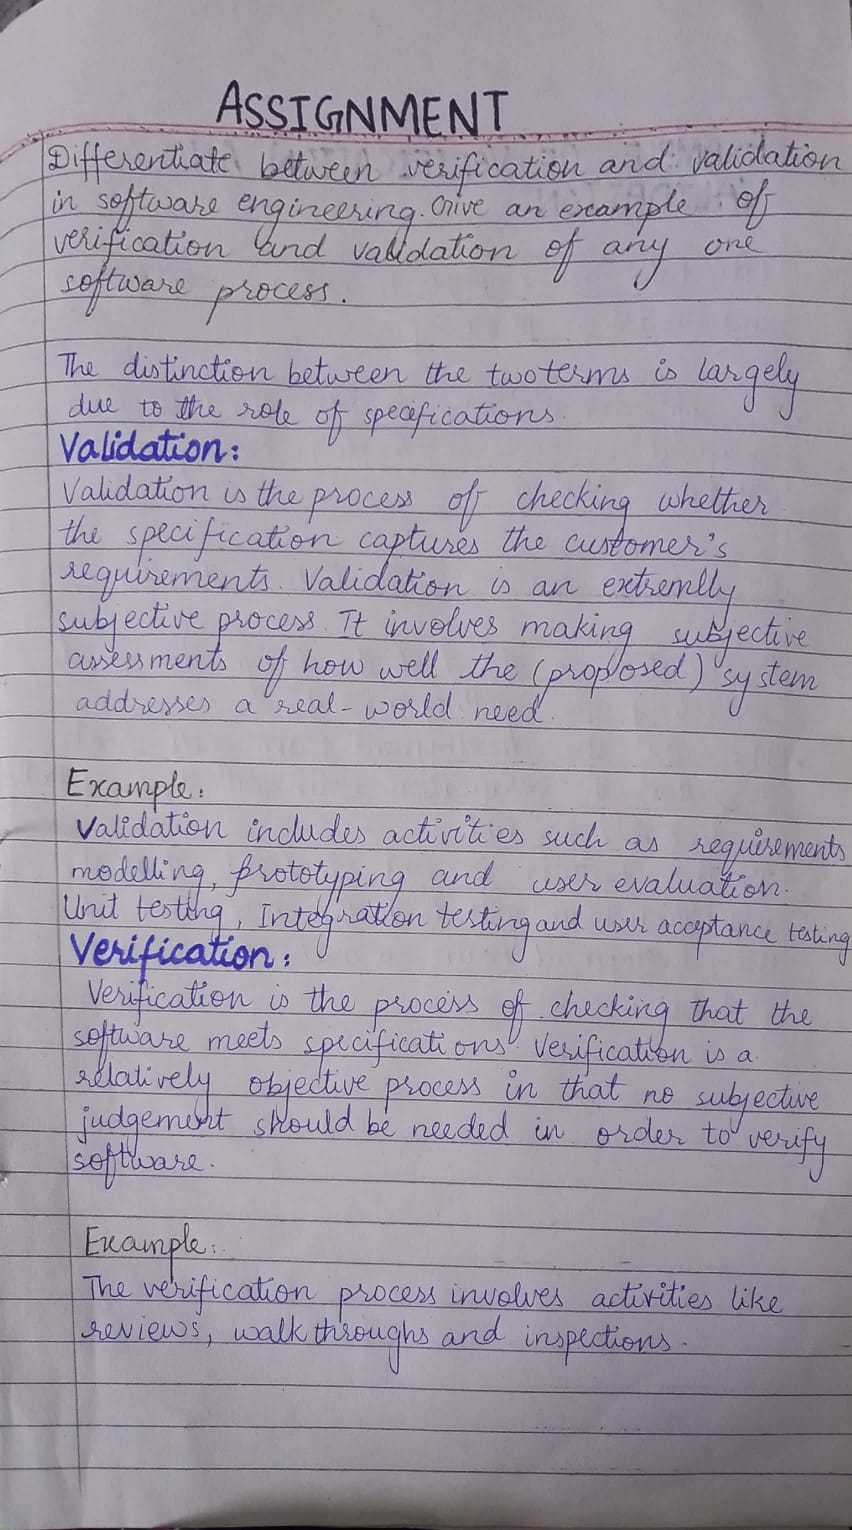 ASSIGNMENT
Differentiate between verification and validation
in software engineering. Give an example of
verification and validation of any one
software process.
The distinction between the two terms is largely
due to the role of specifications.
Validation:
Validation is the process of checking whether
the specification captures the customer's
requirements. Validation is an extremlly
subjective process. It involves making subjective
assessments of how well the (proposed) system
addresses a real-world need.
Example:
Validation includes activities such as requirements
modelling, prototyping and user evaluation.
Unit testing, Integration testing and user acceptance testing
Verification:
Verification is the process of checking that the
software meets specifications. Verification is a
relatively objective process in that no subjective
judgement should be needed in order to verify
software.
Example:
The verification process involves activities like
reviews, walkthroughs and inspections.